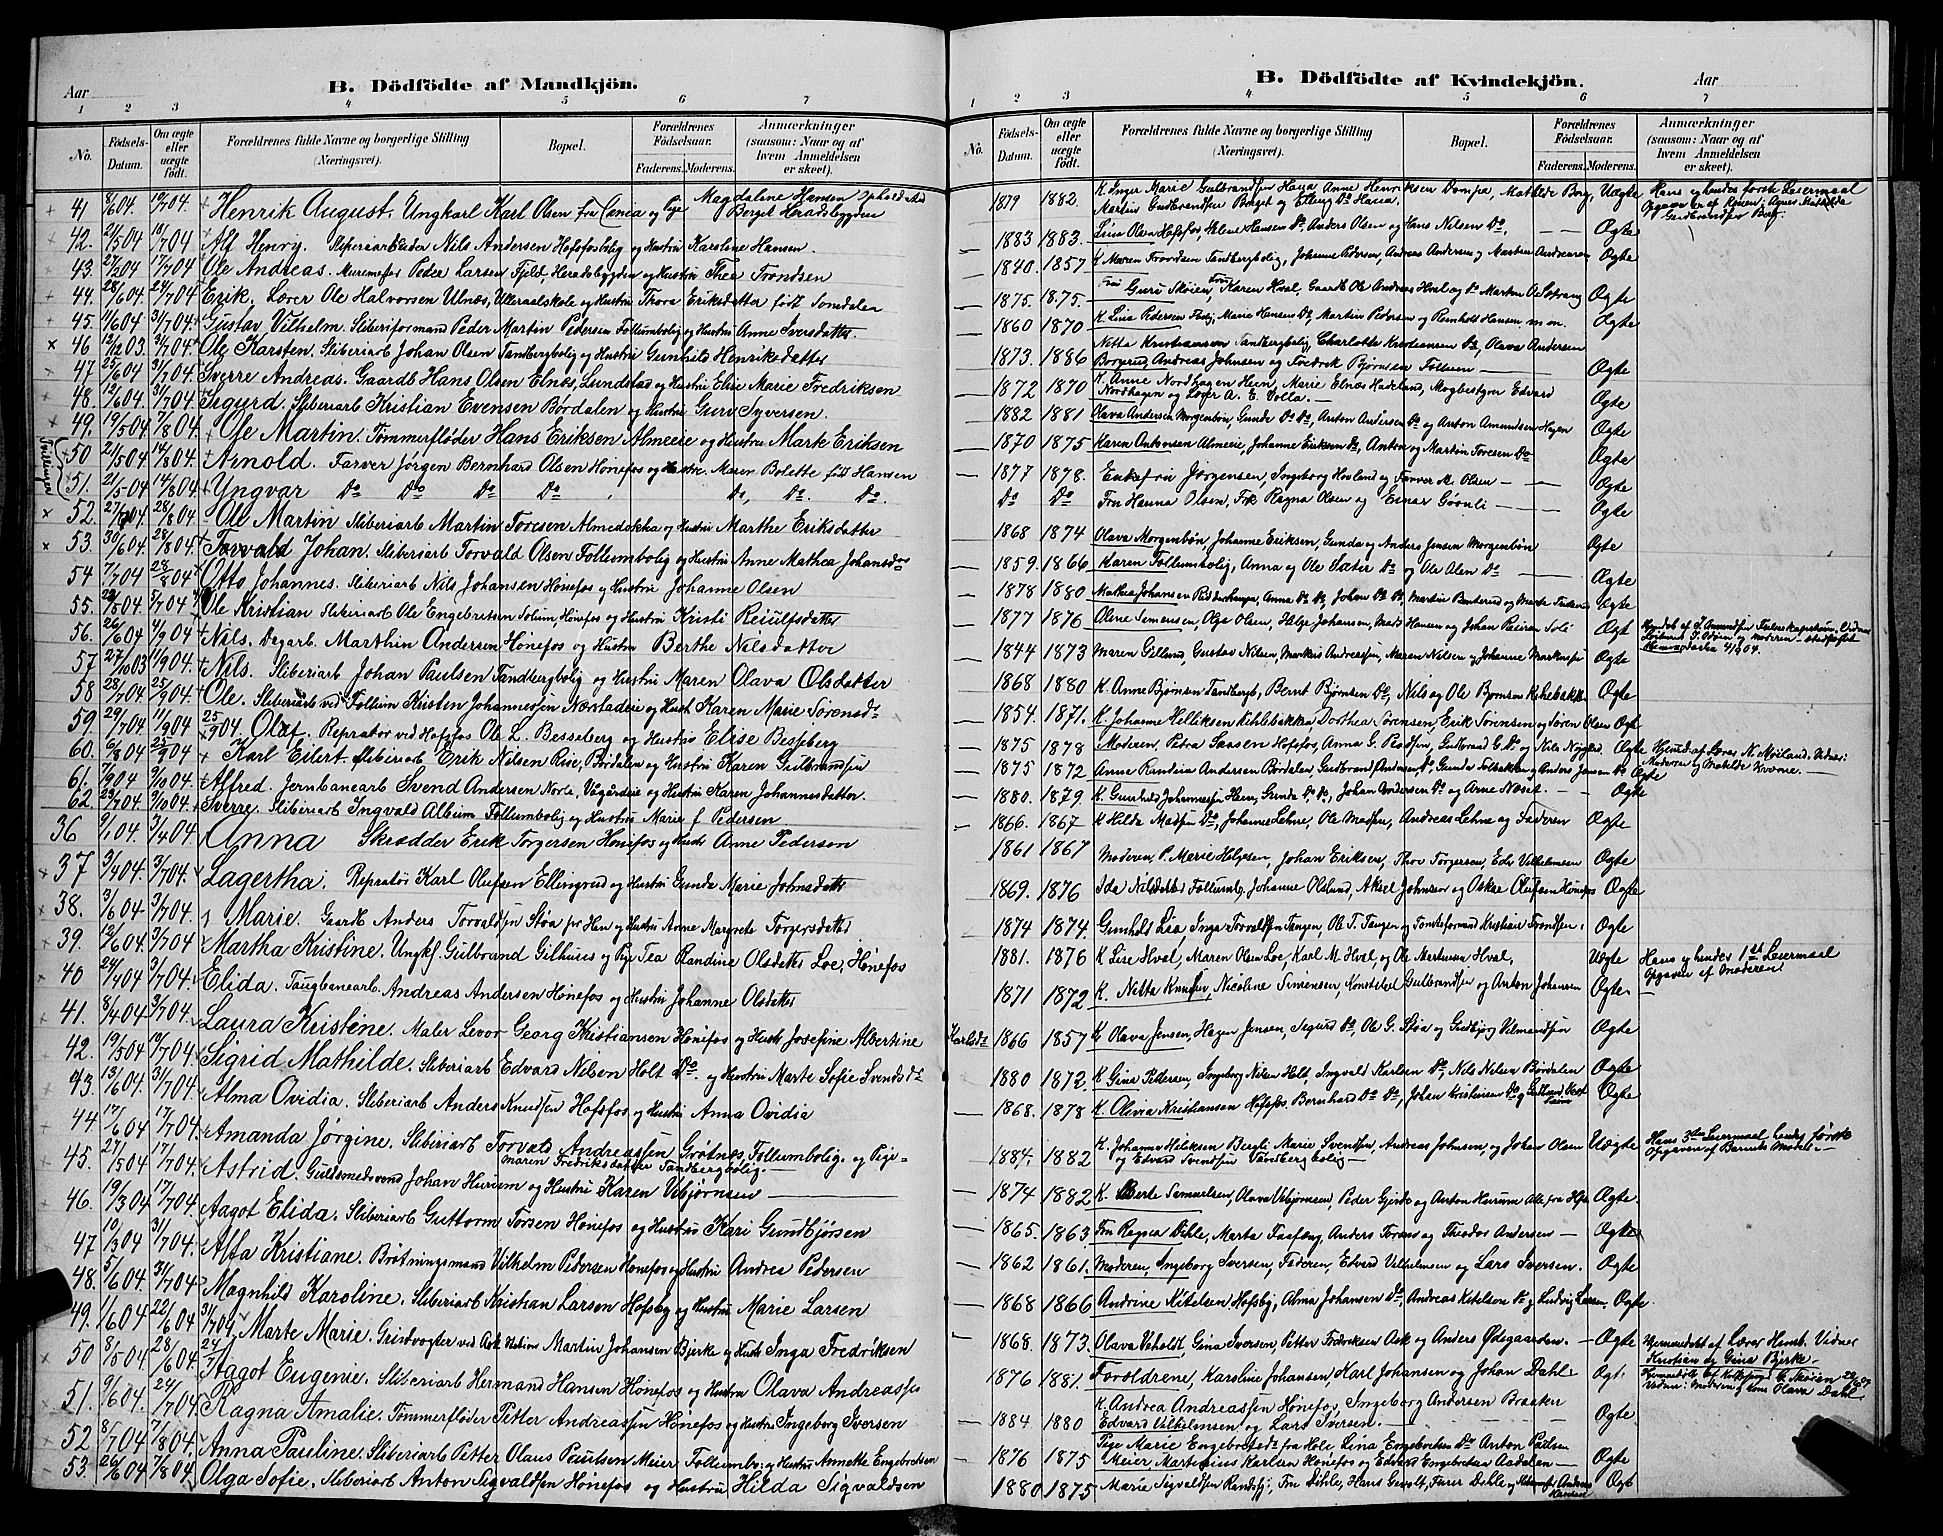 Aar
B. Dödfödte af Mandkjön.
1 2 3 4 5 6 7
No.
Födsels-Datum.
Om ægte eller uægte födt.
Forældrenes fulde Navne og borgerlige Stilling (Næringsvei).
Bopæl.
Forældrenes Födselsaar.
Faderens. Moderens.
Anmærkninger (saasom: Naar og af hvem Anmeldelsen er skeet).
41 8/6 04. 10/7 04. Henrik August. Ungkarl Karl Olsen fra Hania og Pige Magdaline Hansen Ophold sted Berget Heradsbygden
42. 21/5 04 10/7 04 Alf Henry. Sliberiarbeider Nils Andersen Hofsfosbolig og Hustru Karoline Hansen.
43. 27/2 04 17/7 04 Ole Andreas. Peder Larsen Fjeld, Heradsbygden og Hustru Thea Trondsen
44. 28/6 04. 24/7 04 Erik. Lærer Ole Halvorsen Ulnæs, Ulleraalskole og Hustru Thora Eriksdatter født Tondalen
45. 11/6 04 31/7 04 Gustav Vilhelm. Sliberiformand Peder Martin Pedersen Follumbolig og Hustru Anne Iversdatter
46 12/12 03. 31/7 04. Ole Karsten. Sliberiarb Johan Olsen Tandbergbolig og Hustru Gunhild Henriksdatter
47 25/6 04 31/7 04 Sverre Andreas. Gaardb Hans Olsen Elnæs, Lundstad og Hustru Elise Marie Fredriksen
48. 12/6 04. 31/7 04 Sigurd. Sliberiarb Kristian Evensen Børdalen og Hustru Guro Syversen.
49. 19/5 04 7/8 04 Ole Martin. Tømmerfløder Hans Eriksen Almeeie og Hustru Marte Eriksen
Tvillinger
50 21/5 04. 14/8 04. Arnold. Farver Jørgen Bernhard Olsen Hønefos og Hustru. Maren Bolette født Hansen
51. 21/5 04 14/8 04. Yngvar Do Do Do Do Do, Do. Do.
52. 27/6 04. 28/8 04. Ole Martin Sliberiarb Martin Toresen Almebakka og Hustru Marthe Eriksdatter
53. 30/6 04. 28/8 04. Torvald Johan. Sliberiarb Torvald Olsen Follumbolig og Hustru Anne Mathea Johansdtr
54 7/7 04 28/8 04 Otto Johannes. Sliberiarb Nils Johansen Hønefos og Hustru Johanne Olsen
55. 04. 5/7 04 Ole Kristian Sliberiarb Ole Engebretsen Solum, Hønefos og Hustru Kristi Reiulfsdatter
56. 26/6 04 4/9 04 Nils. Dagarb. Marthin Andersen Hønefos og Hustru Berthe Nilsdatter
57 27/10 03 11/9 04. Nils. Sliberiarb Johan Paulsen Tandbergbolig og Hustru Maren Olava Olsdatter
58 28/7 04. 25/9 04 Ole. Sliberiarb ved Follum Kristen Johannessen Nærstadeie og Hust Karen Marie Sørensdtr
59. 29/7 04. 11/9 04 25/9 04. Olaf. Repratør ved Hofsfos Ole L. Besseberg og Hustru Elise Besseberg
60. 6/8 04 25/9 04 Karl Eilert. Sliberiarb Erik Nilsen Rise, Børdalen og Hustru Karen Gulbransen
61. 7/9 04 9/10 04 Alfred. Jernbanearb Svend Andersen Norle, Vågårdeie og Hustru Karen Johannesdatter.
62 23/7 04. 9/10 04. Sverre. Sliberiarb Ingvald Albium Follumbolig og Hustru Marie f Pedersen.
36 9/1 04. 3/4 04. Anna Skrædder Erik Torgersen Hønefos og Hust Anne Pederson
37 3/4 04. 3/7 04. Lagertha. Repratør Karl Olufsen Ellingrud og Hustru Gunda Marie Johnsdatter
38. 3/6 04 3/7 04. Marie. Gaardb Anders Torvaldsen Støa for Hen og Hustru Anne Margrete Torgersdatter
39. 12/6 04. 3/7 04. Martha Kristine. Ungkf Gulbrand Gilhuus og Pige Tea Randine Olsdatter Loe, Hønefos
40 24/4 04 3/7 04. Elida. Taugbanearb. Andreas Andersen Hønefos og Hustru Johanne Olsdatter
41. 8/4 04 3/7 04. Laura Kristine. Maler Levor Georg Kristiansen Hønefos og Hust Josefine Albertine Karlsdtr
42. 19/5 04 10/7 04. Sigrid Mathilde. Sliberiarb Edvard Nilsen Holt Do. og Hustru Marte Sofie Svendsdtr
43. 13/6 04. 31/7 04. Alma Ovidia. Sliberiarb Anders Knudsen Hofsfos og Hustru Anna Ovidia
44. 17/6 04 17/7 04. Amanda Jørgine. Sliberiarb Torvald Andreassen Grøtnæs, Follumbolig. og Pige- Maren Fredriksdatter Tandbergbolig.
45. 27/5 04 17/7 04. Astrid. Guldsmedsvend Johan Hurum og Hustru Karen Vebjørnsen
46. 19/3 04 17/7 04. Aagot Elida. Sliberiarb Guttorm Torsen Hønefos og Hustru Kari Gundbjørsen
47 10/3 04 31/7 04. Alfa Kristiane. Brøtningsmand Vilhelm Pedersen Hønefos og Hustru Andrea Pedersen
48. 5/6 04 31/7 04. Magnhild Karoline. Sliberiarb Kristian Larsen Hofsby og Hustru Marie Larsen
49. 1/6 04 22/6 04 31/7 04 Marte Marie. Grindvogter ved Ask Station Martin Johansen Bjerke og Hustr Inga Fredriksen
50 8/5 04 28/6 04. 24/7 Aagot Eugenie. Sliberiarb Hermand Hansen Hønefos og Hustru Olava Andreassen
51. 9/6 04. 24/7 04. Ragna Amalie. Tømmerfløder Petter Andreassen Hønefos og Hustru Ingeborg Iversen
52 8/7 04 7/8 04. Anna Pauline. Sliberiarb Petter Olaus Paulsen Meier Follumb: og Hustru Annette Engebretsen
53. 26/6 04 7/8 04. Olga Sofie. Sliberiarb Anton Sigvaldsen Hønefos og Hustru Hilda Sigvaldsen
B. Dödfödte af Kvindekjön.
Aar
1 2 3 4 5 6 7
No.
Födsels-Datum.
Om ægte eller uægte födt.
Forældrenes fulde Navne og borgerlige Stilling (Næringsvei).
Bopæl.
Forældrenes Födselsaar.
Faderens. Moderens.
Anmærkninger (saasom: Naar og af hvem Anmeldelsen er skeet).
1879 1882. K. Inger Marie Gulbrandsen Haga, Anne Henriksen Dompa, Matilde Borg, Martin Gudbrandsen Borget og Elling Do Hania, Uægte Hans og hendes første Leiermaal Opgaven er af Konen, Agnes Mathilde Gudbrandsen Borg.
1883 1883. Lina Olsen Hofsfos, Helene Hansen Do, Anders Olsen og Hans Nilsen Do, Ægte
1840 1857 K Maren Trondsen Tandbergbolig, Johanne Pedersen, Andreas Andersen og Martin Andreasen Ægte
1875. 1875. Fru Guri Skoien, Fru Karen Hval, Gaardb Ole Andreas Hval og Do Martin A. Ægte
1860 1870 K. Lina Pedersen, Marie Hansen Do, Martin Pedersen og Reinhold Hansen Ægte
1873. 1886 Netta Kristiansen Tandbergbolig, Charlotte Kristiansen Do, Olava Andersen Borgerud, Andreas Johnsen og Fredrik Bjørnsen Follum Ægte
1872 1870 K. Anne Nordhagen Heen, Marie Elnæs Hadeland, Edvard Nordhagen og Lærer A. E. Tolla. Ægte
1882 1881 Olava Andersen Morgenbøn, Gunda Do Do, Anton Andersen Do og Anton Amundsen Hagen Ægte
1870 1875 Karen Antonsen Almeeie, Johanne Eriksen Do, Anton og Martin Toresen Do Ægte
1877 1878. Enkefru Jørgensen, Ingeborg Hovland og Farver M. Olsen Ægte
Do Do Fru Hanna Olsen, Frk Ragna Olsen og Einar Grønli Ægte
1868 1874 Olava Morgenbøn, Johanne Eriksen, Gunda og Anders Jensen Morgenbøn Ægte
1859. 1866 Karen Follumbolig, Anna og Ole Sæter Do og Ole Alen Do Ægte
1878 1880 Mathea Johansen, Anna Do Do, Johan Do Do, Martin Benterud og Marte Ægte
1877 1876 Olene Simensen, Olga Olsen, Helge Johansen, Mads Hansen og Johan Petersen Soli Ægt
1844 1873 Maren Gillund, Gustav Nilsen, Markus Andreassen, Maren Nilsen og Johanne Ægte
1868 1880 K. Anne Bjørnsen Tandbergb, Bernt Bjørnsen Do, Nils og Ole Bjørnsen Kihlebakka Ægte
1854. 1871. K. Johanne Helliksen Kihlebakka Dorthea Sørensen, Erik Sørensen og Søren Olsen Ægt
1875 1878 Moderen, Petra Hofsfos, Anna G. Gulbrand G. Do og Nils Ægte Hjemd. af Løras N. Moiland, Vidner: Moderen og Matilde Krone.
1875 1872 Anne Randine Andersen Børdalen, Gudbrand Andersen, Do, Gunda og Anders Jensen Do Ægte
1880. 1879 K. Gunhild Johannessen Heen, Gunda Do, Do, Johan Andersen Do og Arne Næset. Ægte
1866. 1867 K Hilda Madsen Do, Johannes Lehne, Ole Madsen, Andreas Lehne og Faderen Ægte
1861 1867 Moderen, P. Marie Helgesen, Johan Eriksen, Thor Torgersen, Edv Vilhelmsen Ægte
1869. 1876 Ida Nilsdatter Follumb, Johanne Olslund, Aksel Johnsen og Oskar Olufsen Hønefos Ægte
1874 1874. Gunhild Lia, Inga Torvaldsen Tangen, Ole T. Tangen og Kristian Trondsen Ægte
1881. 1876 K Lise Hval, Maren Olsen Loe, Karl M. Hval og Ole Martinsen Hval, Uægte Hans og hendes 1ste Leiermaal Opgaven af Moderen
1871 1872 K. Netta Knudsen, Nicoline Simensen, Konstabel Gulbrandsen og Anton Johansen Ægte.
1866 1857 K Olava Jensen, Hagen Jensen, Sigurd Do, Ole G. Støa og Gudbjørg Vilmandsen Ægte
1880 1872. K Gina Pettersen, Ingeborg Nilsen Holt, Ingvald Karlsen Do, Nils Nilsen Børdalen Ægte
1868. 1878 K. Olivia Kristiansen Hofsfos, Bernhard Do Do, Johan Kristiansen Do Ægte
1884. 1882 K. Johanne Heleksen Bergli Marie Svendsen, Andreas Johnsen, og Johan Olsen og Edvard Svendsen Tandbergbolig Uægte Hans 3die Leiermaal, hendes første Opgaven af Barnets Moder
1874 1882 K. Berte Samuelsen, Olava Vebjørnsen, Peder Gjerde og Anton Hurum Alle fra Hfs Ægte.
1865. 1863 Fru Ragna Dehle, Marta Faafæng, Anders Torsen og Theodor Andersen Ægte
1862 1861. Moderen, Ingeborg Iversen, Faderen, Edvard Vilhelmsen og Lars Iversen. Ægte
1868 1866 Andrine Kitelsen Hofsby, Alma Johansen Do, Andreas Kitelsen Do og Ludvig Larsen, Ægte.
1868. 1873. Olava Veholdt, Gina Iversen, Petter Fredriksen Ask og Anders Ødegaarden. Ægte Hjemmedøbt af Lærer Vidner Kristian og Gina Bjerke.
1876 1881. Forældrene, Karoline Johansen, Karl Johansen og Johan Dahl Ægt. Vidner: Moderen og Olava Dahl
1884 1880 K. Andrea Andreassen Hønefos, Ingeborg Andersen Braaker Edvard Vilhelmsen og Lars Iversen. Ægte
1876 1875 Pige Marie Engebretsdtr fra Hole, Lina Engebretsen Do, Anton Paulsen Meier Martenius Karlsen Hønefos og Edvard Engebretsen Aadalen Ægte
1880 1875 Marie Sigvaldsen Randsfj:, Fru Dihle, Hans Farer Dehle, og Andreas Hansen Ægt